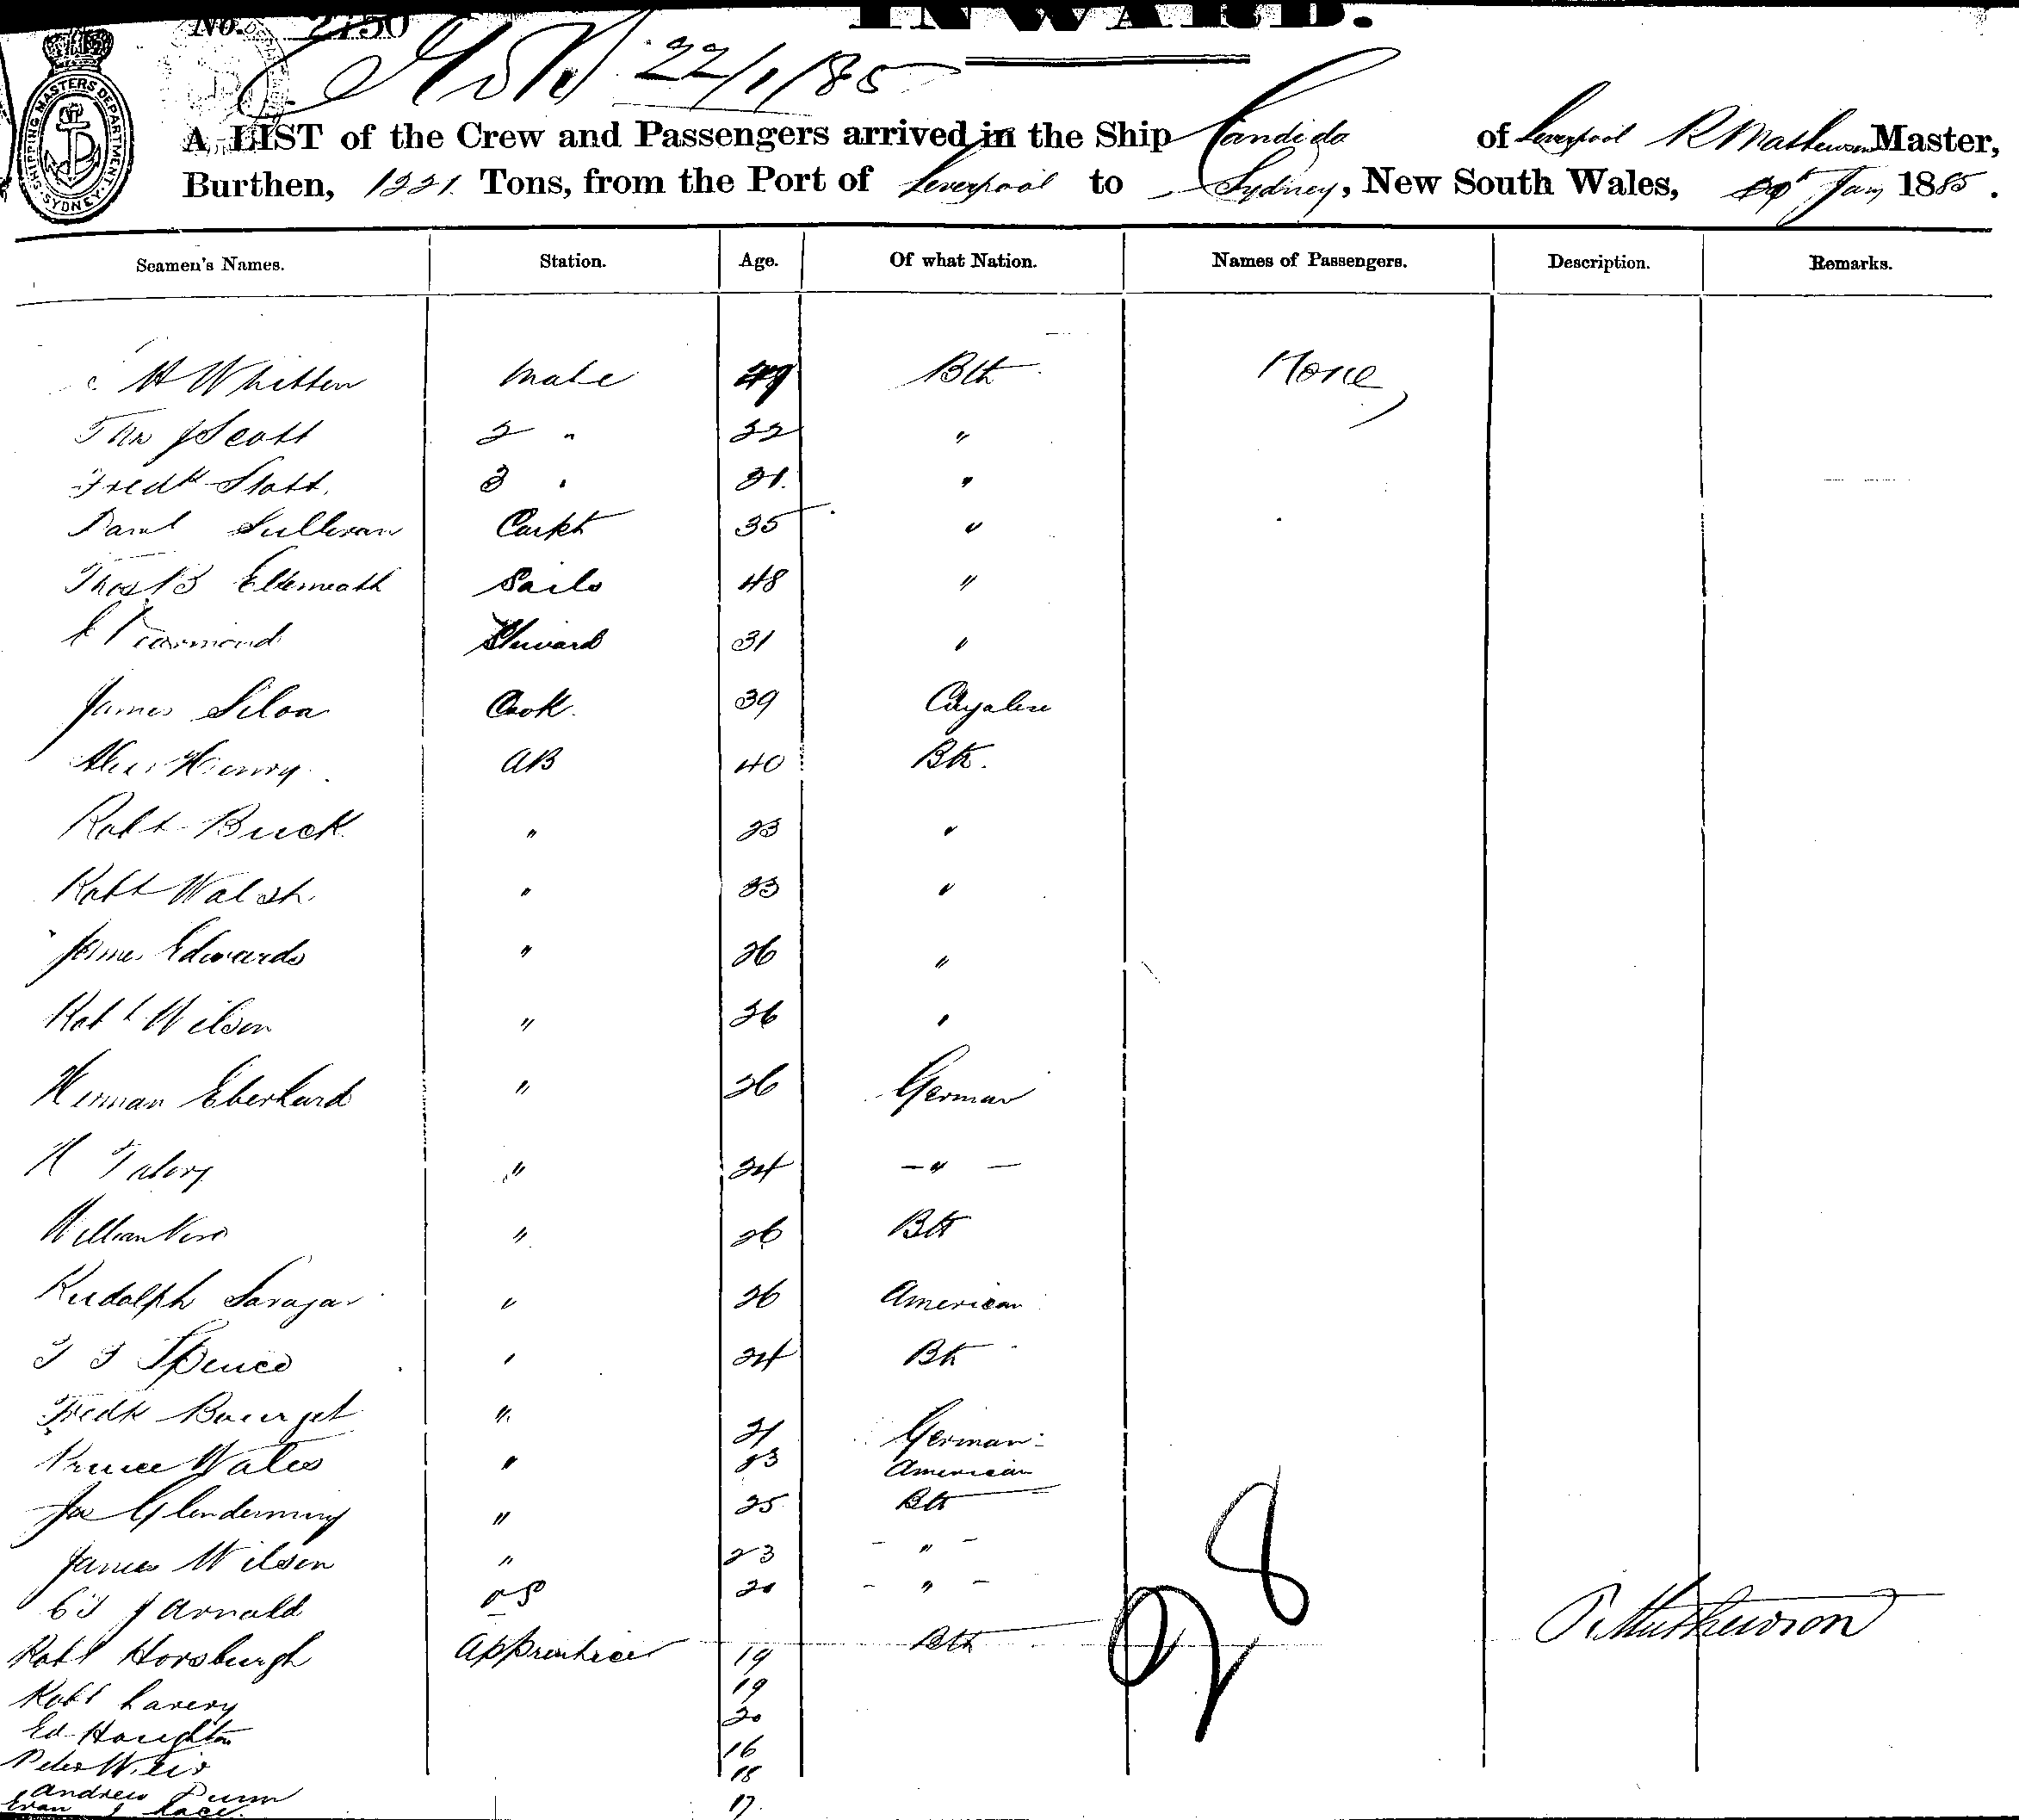 No. 2750 INWARD.
22/1/85
SHIPPING MASTERS DEPARTMENT SYDNEY
A LIST of the Crew and Passengers arrived in the Ship Candida of Liverpool R Mathewson Master,
Burthen, 1221 Tons, from the Port of Liverpool to Sydney, New South Wales, Jany 1885.
Seamen's Names. Station. Age. Of what Nation. Names of Passengers. Description. Remarks.
H Whitten Mate Bth None
Thos J Scott 2 " 22 "
Fredk Stott. 3 " 21. "
Danl Sullivan Carptr 35 "
Thos B Sails 48 "
Steward 31 "
James Silva Cook. 39
Alexr Henry AB 40 Bth.
Robt Buck " 23 "
Robt Walsh. " 33 "
James Edwards " 26 "
Robt Wilson " 36 "
Herman Eberhard " 26 German
H " 24 - " -
William " 26 Bth
Rudolph " 26 American
Spence " 24 Bth
Fredk " 21 German
Prince Wales " 23 American
Jas Glendenning " 25 Bth
James Wilson " 23 - " -
J Arnold OS 20 - " -
Robt Horsburgh Apprentices 19 Bth
Robt Lavery 19
Ed Houghton 20
Peter Weir 16
Andrew Dunn 18
Evan J Race. 17.
28
R Mathewson